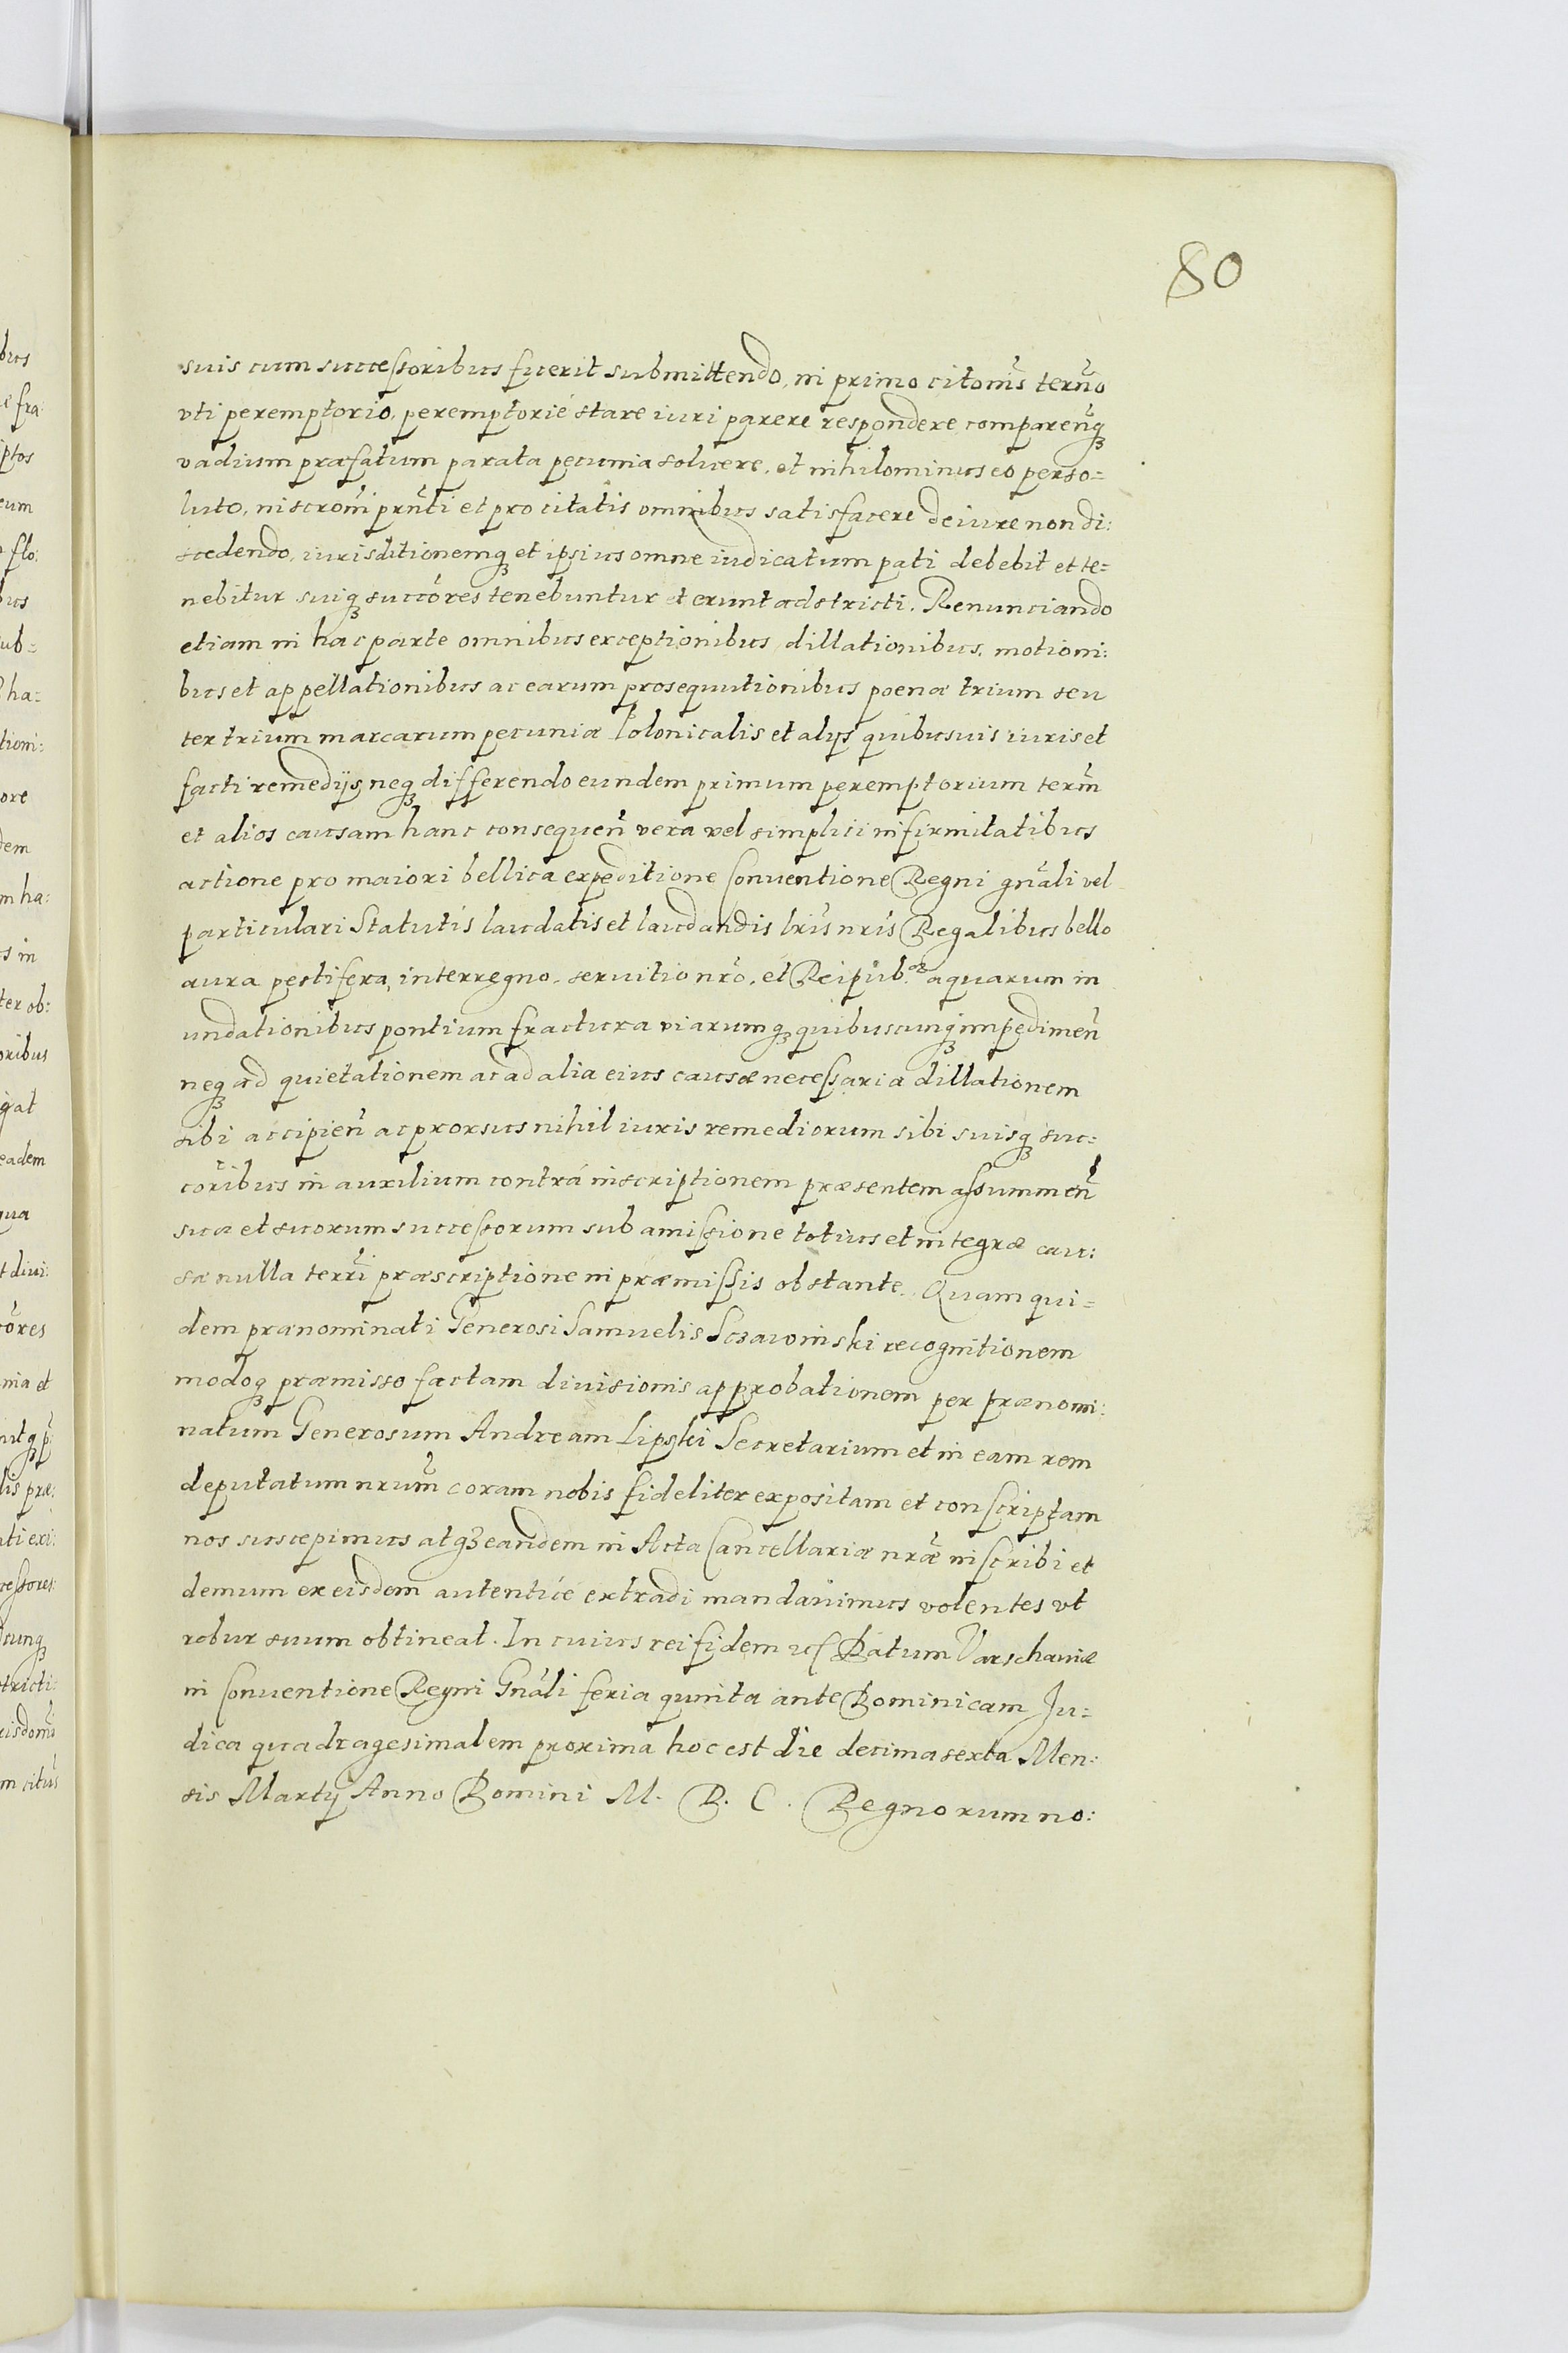 80
suis cum successoribus fuerit submittendo, in primo citonis termo
vti peremptorio, peremptorié stare iuri parere respondere comparenq3
vadium præfatum parata pecunia soluere, et nihilominus eo perso=
luto, inscroni prnti et pro citatis omnibus satisfacere de iure non di:
scedendo, iurisditionemq3 et ipsius omne iudicatum pati debebit et te=
nebitur suiq3 succôres tenebuntur et erunt adstricti. Renunciando
etiam in hac parte omnibus exceptionibus, dillationibus, motioni:
bus et appellationibus ac earum prosequutionibus poenæ trium seu
ter trium marcarum pecuniæ Polonicalis et alijs quibusuis iuris et
facti remedijs neq3 differendo eundem primum peremptorium term
et alios causam hanc consequen vera vel simplici infirmitatibus
actione pro maiori bellica expeditione Conuentione Regni gnali vel
particulari Statutis laudatis et laudandis lris nris Regalibus bello
aura pestifera, interregno, seruitio nro, et Reipub.æ aquarum in
undationibus pontium fractura viarumq3 quibuscunq3 impedimen
neq3 ad quietationem ac ad alia eius causæ necessaria dillationem
sibi accipien ac prorsus nihil iuris remediorum sibi suisq3 suc:
coribus in auxilium contrá inscriptionem præsentem assummen
suæ et suorum successorum sub amissione totius et integræ cau:
sæ nulla terri præscriptione in præmissis obstante. Quam qui=
dem prænominati Generosi Samuelis Sczawinski recognitionem
modoq3 præmisso factam diuisionis approbationem per prænomi:
natum Generosum Andream Lipski Secretarium et in eam rem
deputatum nrum coram nobis fideliter expositam et conscriptam
nos suscepimus atq3 eandem in Acta Cancellariæ nræ inscribi et
demum ex eisdem autenticé extradi mandauimus volentes vt
robur suum obtineat. In cuius rei fidem etc Datum Varschauiæ
in Conuentione Regni Gnáli feria quinta ante Dominicam Ju=
dica quadragesimalem proxima hoc est die decima sexta Men:
sis Martij Anno Domini M. D. C. Regnorum no: